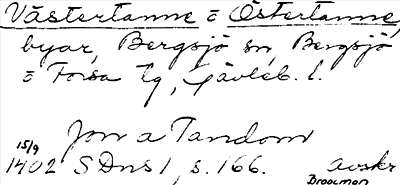 Västertanne o Östertanne,
byar, Bergsjö sn, Bergsjö
o Forsa tg, Gävleb. l.
Jon a Tandom
15/9
1402 SDns 1, s. 166. avskr
Brocman